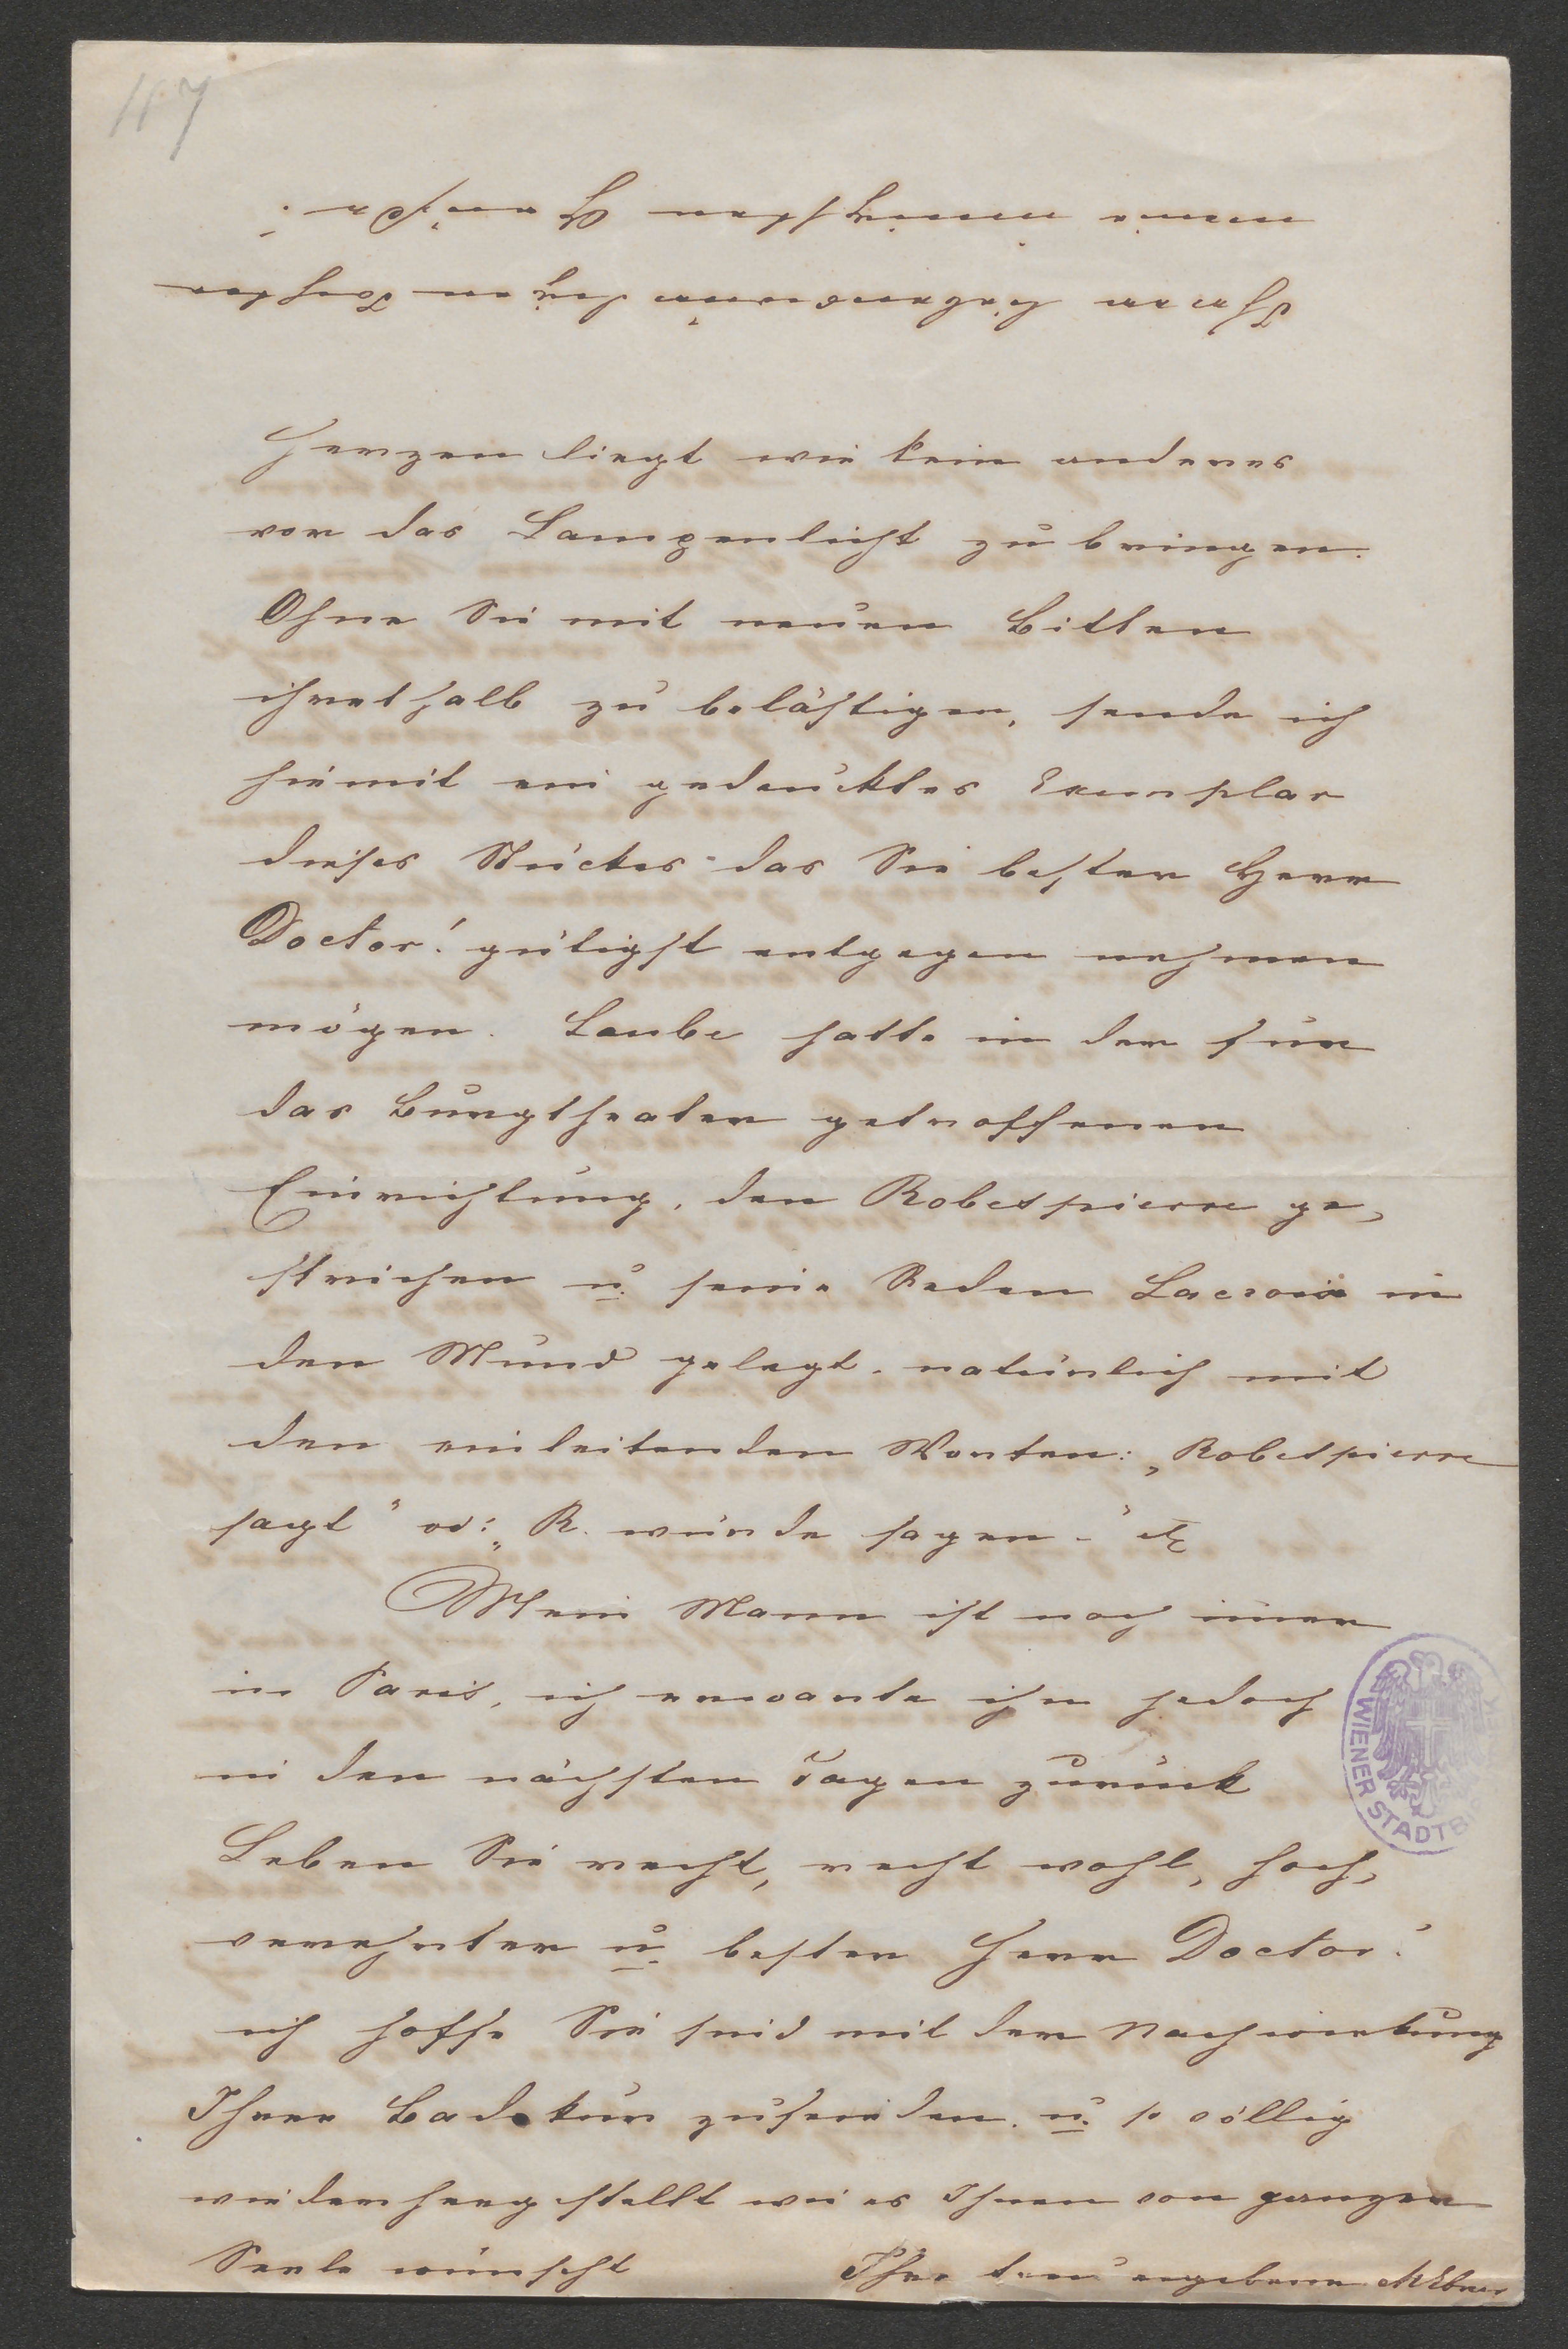 117
Herzen liegt wie kein anderes
vor das Lampenlicht zu bringen.
Ohne Sie mit neuen Bitten
ihrethalb zu belästigen, sende ich
hiemit ein gedrucktes Exemplar
dieses Stückes das Sie bester Herr
Doctor! gütigst entgegen nehmen
mögen. Laube hatte in der für
das Burgtheater getroffenen
Einrichtung, den Robespierre ge-
strichen u. seine Reden Lacroix in
den Mund gelegt, natürlich mit
den einleitenden Worten: „Robespierre
sagt" od: „R. würde sagen –" etc
Mein Mann ist noch immer
in Paris, ich erwarte ihn jedoch
in den nächsten Tagen zurück
Leben Sie recht, recht wohl, hoch-
verehrter u. bester Herr Doctor!
ich hoffe Sie sind mit der Nachwirkung
Ihrer Badekur zufrieden u. so völlig
wiederhergestellt wie es Ihnen von ganzer
Seele wünscht Ihre treu ergebene MEbner
Ihrer liebenswürdigen Tochter
meine innigsten Grüße!
WIENER STADTBI